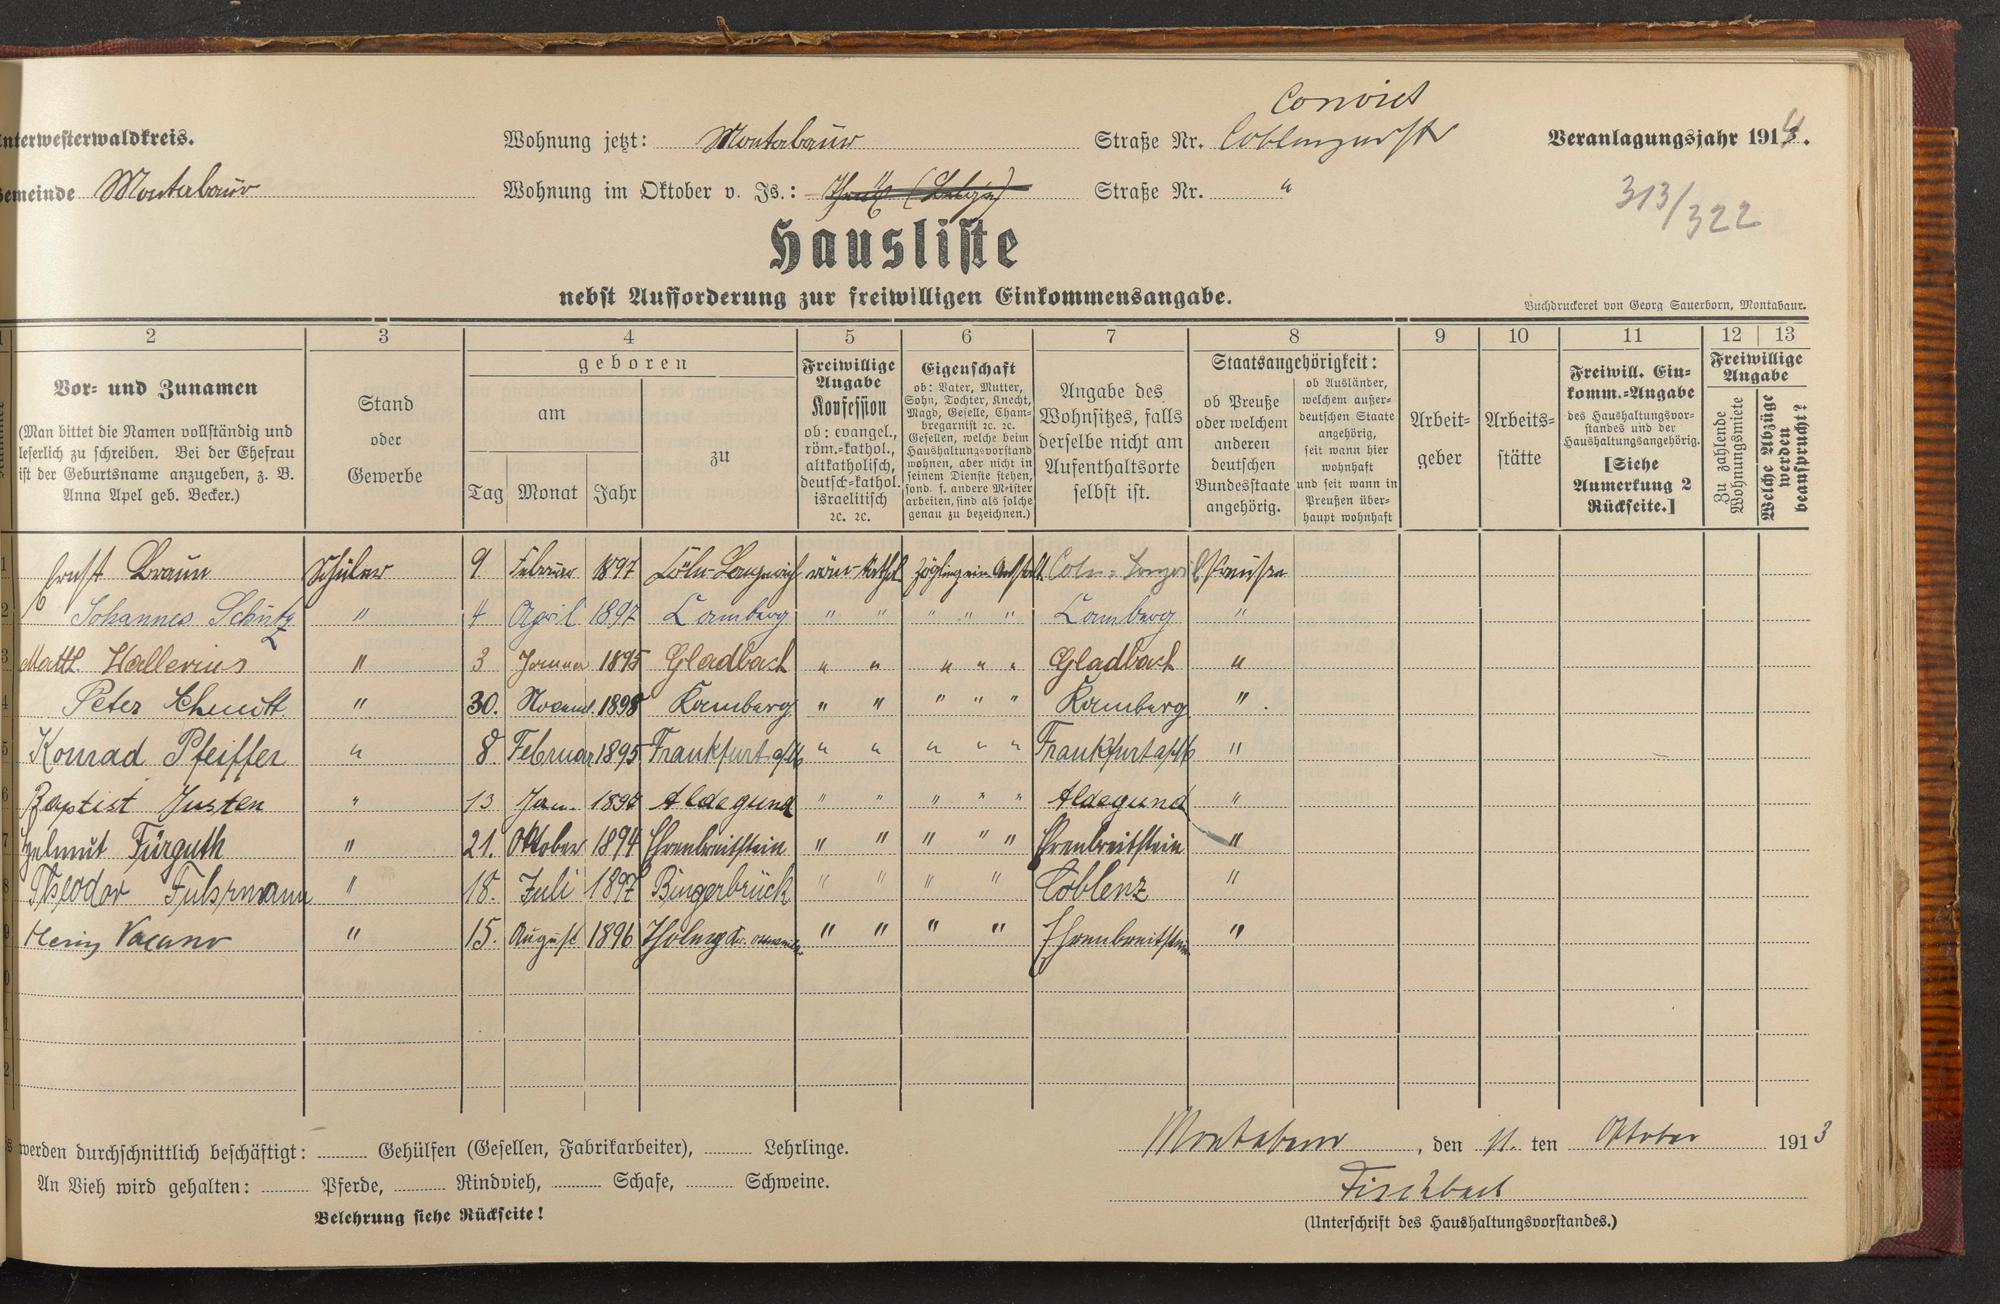 Convict
nterwesterwaldkreis. Wohnung jetzt: Montabaur Straße Nr. Coblenzerstr Veranlagungsjahr 1914.
Gemeinde Montabaur Wohnung im Oktober v. Js.: Straße Nr. "
313/322
Hausliste
nebst Aufforderung zur freiwilligen Einkommensangabe.
Buchdruckerei von Georg Sauerborn, Montabaur.
2 3 4 5 6 7 8 9 10 11 12 13
Vor- und Zunamen
(Man bittet die Namen vollständig und
leserlich zu schreiben. Bei der Ehefrau
ist der Geburtsname anzugeben, z. B.
Anna Apel geb. Becker.)
Stand
oder
Gewerbe
geboren
am
Tag Monat Jahr
zu
Freiwillige
Angabe
Konfession
ob: evangel.,
röm.-kathol.,
altkatholisch,
deutsch-kathol.
israelitisch
ꝛc. ꝛc.
Eigenschaft
ob: Vater, Mutter,
Sohn, Tochter, Knecht,
Magd, Geselle, Cham-
bregarnist ꝛc. ꝛc.
Gesellen, welche beim
Haushaltungsvorstand
wohnen, aber nicht in
seinem Dienste stehen,
sond. f. andere Meister
arbeiten, sind als solche
genau zu bezeichnen.)
Angabe des
Wohnsitzes, falls
derselbe nicht am
Aufenthaltsorte
selbst ist.
Staatsangehörigkeit:
ob Preuße
oder welchem
anderen
deutschen
Bundesstaate
angehörig.
ob Ausländer,
welchem außer-
deutschen Staate
angehörig,
seit wann hier
wohnhaft
und seit wann in
Preußen über-
haupt wohnhaft
Arbeit-
geber
Arbeits-
stätte
Freiwill. Ein-
komm.-Angabe
des Haushaltungsvor-
standes und der
Haushaltungsangehörig.
[Siehe
Anmerkung 2
Rückseite.]
Freiwillige
Angabe
Zu zahlende
Wohnungsmiete
Welche Abzüge
werden
beansprucht?
1 Ernst Braun Schüler 9. Februar 1897 Cöln-Longerich röm-kathol. Zögling einer Anstalt Cöln-Longerich Preuße
2 Johannes Schütz " 4 April 1897 Camberg " " " " " Camberg "
3 Matth. Hallerius " 3 Januar 1895 Gladbach " " " " " Gladbach "
4 Peter Schmitt " 30. Novemb. 1898 Kamberg " " " " " Kamberg "
5 Konrad Pfeiffer " 8. Februar 1895 Frankfurt a/M " " " " " Frankfurt a/M "
6 Baptist Justen " 13 Jan. 1897 Aldegund " " " " " Aldegund "
7 Helmut Fürguth " 21. Oktober 1894 Ehrenbreitstein " " " " " Ehrenbreitstein "
8 Theodor Fuhrmann " 18. Juli 1897 Bingerbrück " " " " Coblenz "
9 Heinz Vacano " 15. August 1896 " " " " Ehrenbreitstein "
0
1
2
werden durchschnittlich beschäftigt: Gehülfen (Gesellen, Fabrikarbeiter), Lehrlinge.
An Vieh wird gehalten: Pferde, Rindvieh, Schafe, Schweine.
Belehrung siehe Rückseite!
Montabaur, den 11. ten Oktober 1913
Fischbach
(Unterschrift des Haushaltungsvorstandes.)